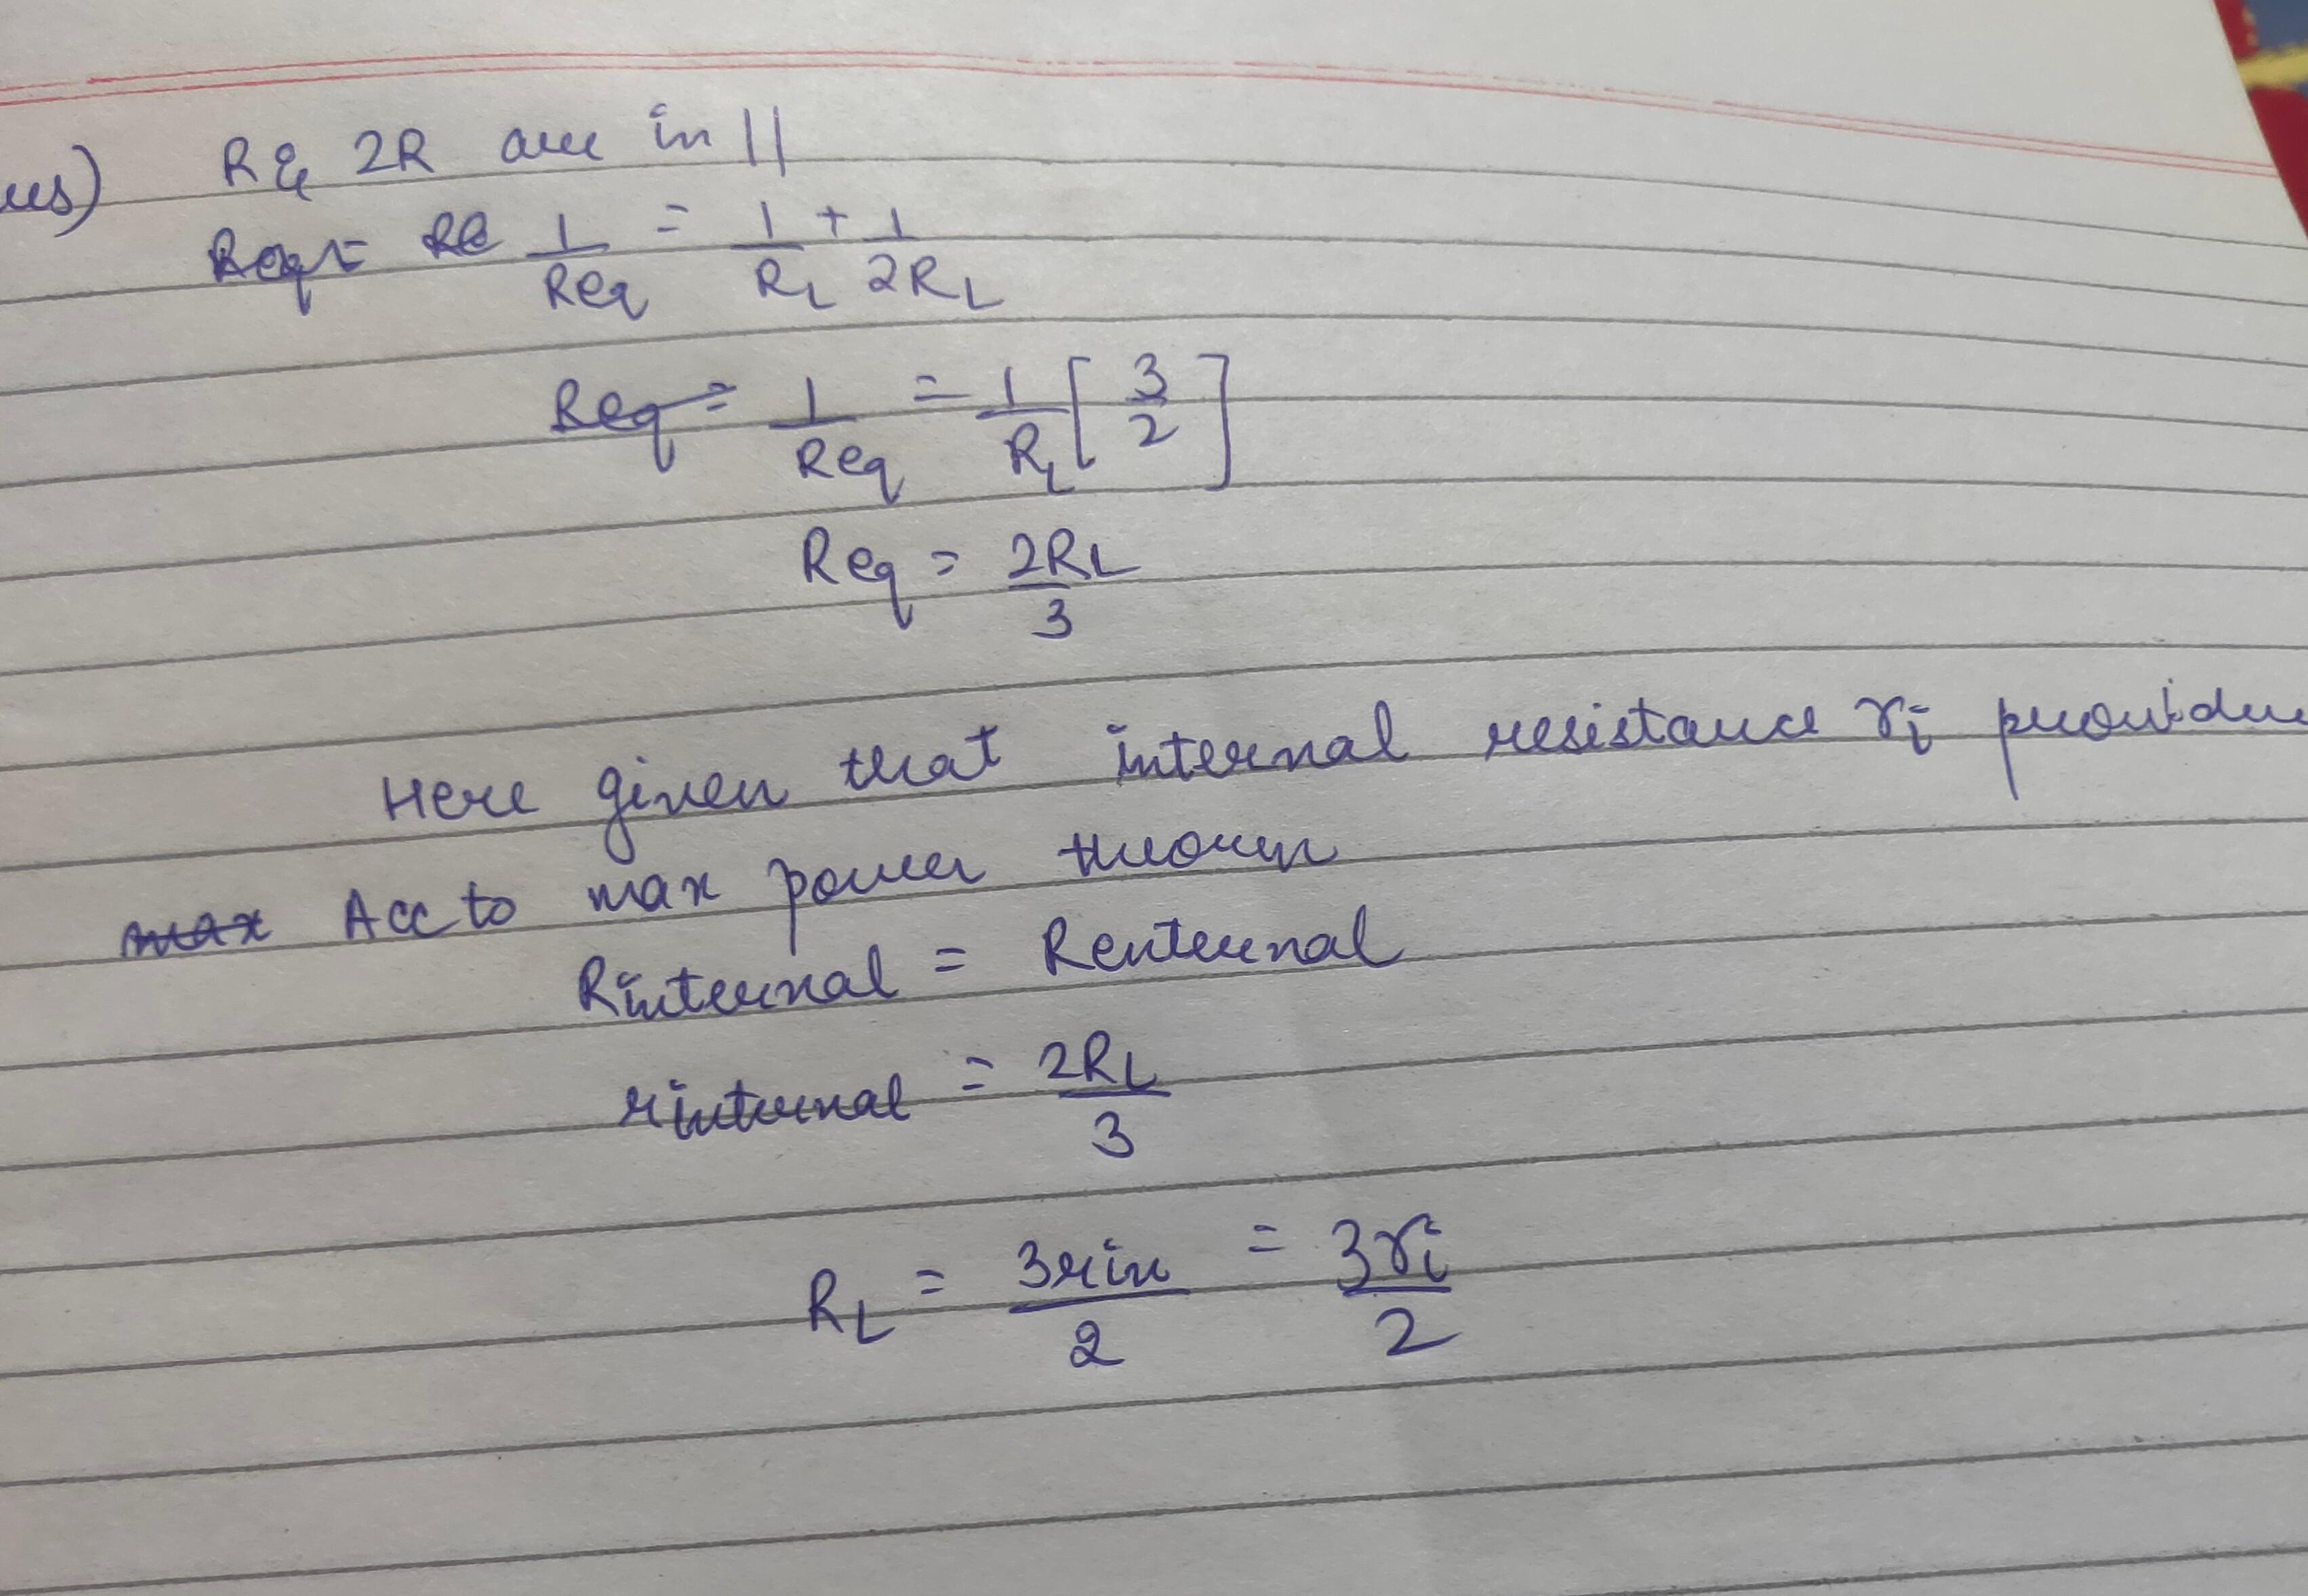 R & 2R are in ||
Req = Re 1/Req = 1/RL + 1/2RL
Req = 1/Req = 1/RL [3/2]
Req = 2RL/3
Here given that internal resistance ri
max Acc to max power
Rinternal = Rexternal
rinternal = 2RL/3
RL = 3rin/2 = 3ri/2